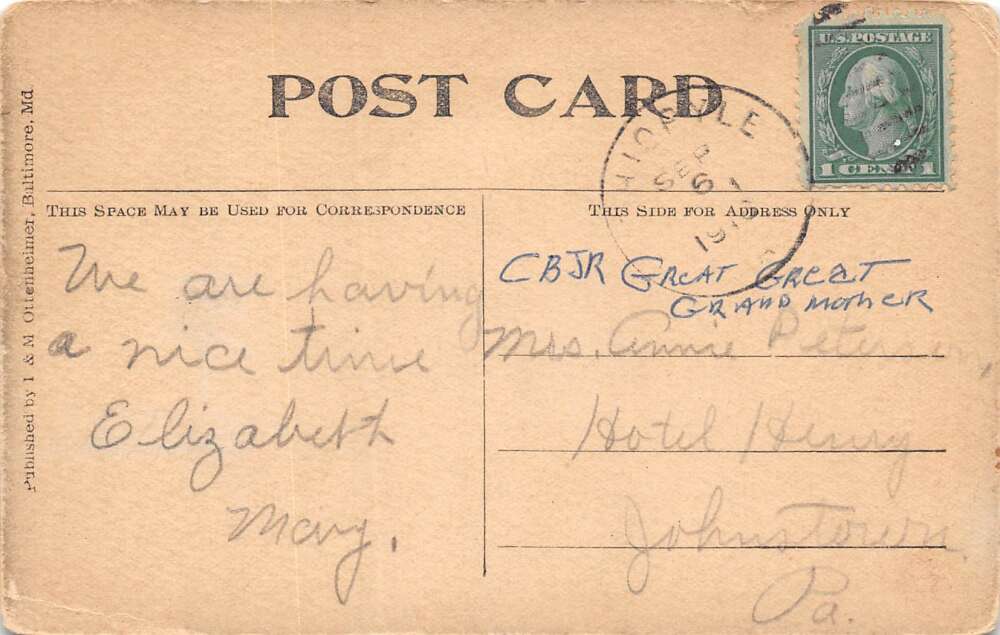 POST CARD
U.S. POSTAGE
1 CENT 1
SEP
6
THIS SPACE MAY BE USED FOR CORRESPONDENCE
THIS SIDE FOR ADDRESS ONLY
Published by I & M Ottenheimer, Baltimore, Md.
We are having
a nice time
Elizabeth
Mary.
CBJR GREAT GREAT
GRAND MOTHER
Mrs. Annie Peterson,
Hotel Henry
Johnstown
Pa.